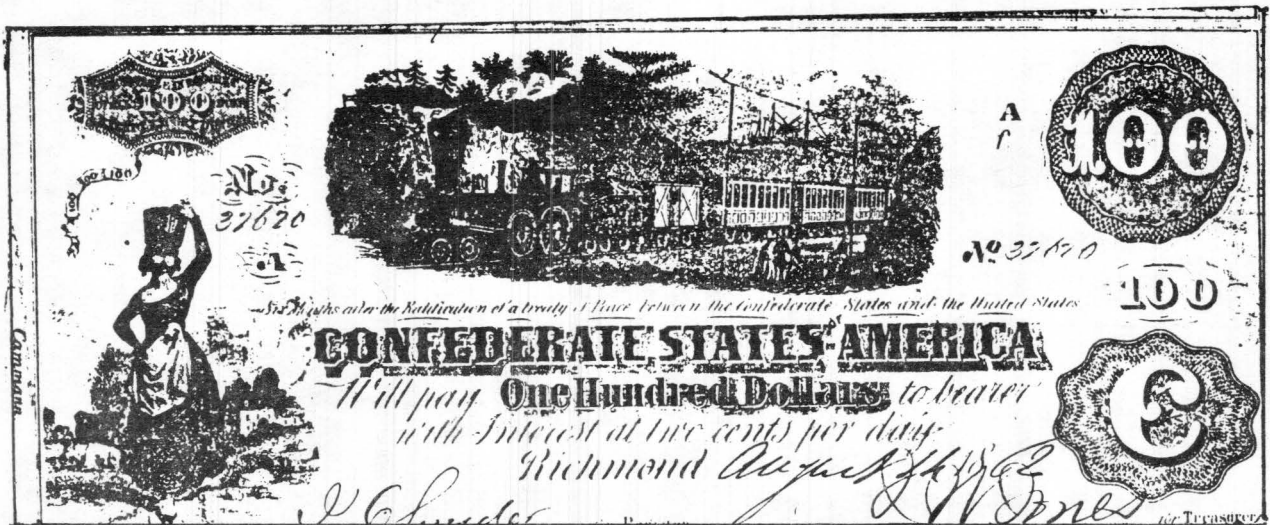 100
100 100 100
No.
37670
A
A
f
100
No 37670
100
Six Months after the Ratification of a treaty of Peace between the Confederate States and the United States
CONFEDERATE STATES OF AMERICA
Will pay One Hundred Dollars to bearer
with Interest at two cents per day
Richmond August 1862
C
Jones
for Treasurer
Cammann.